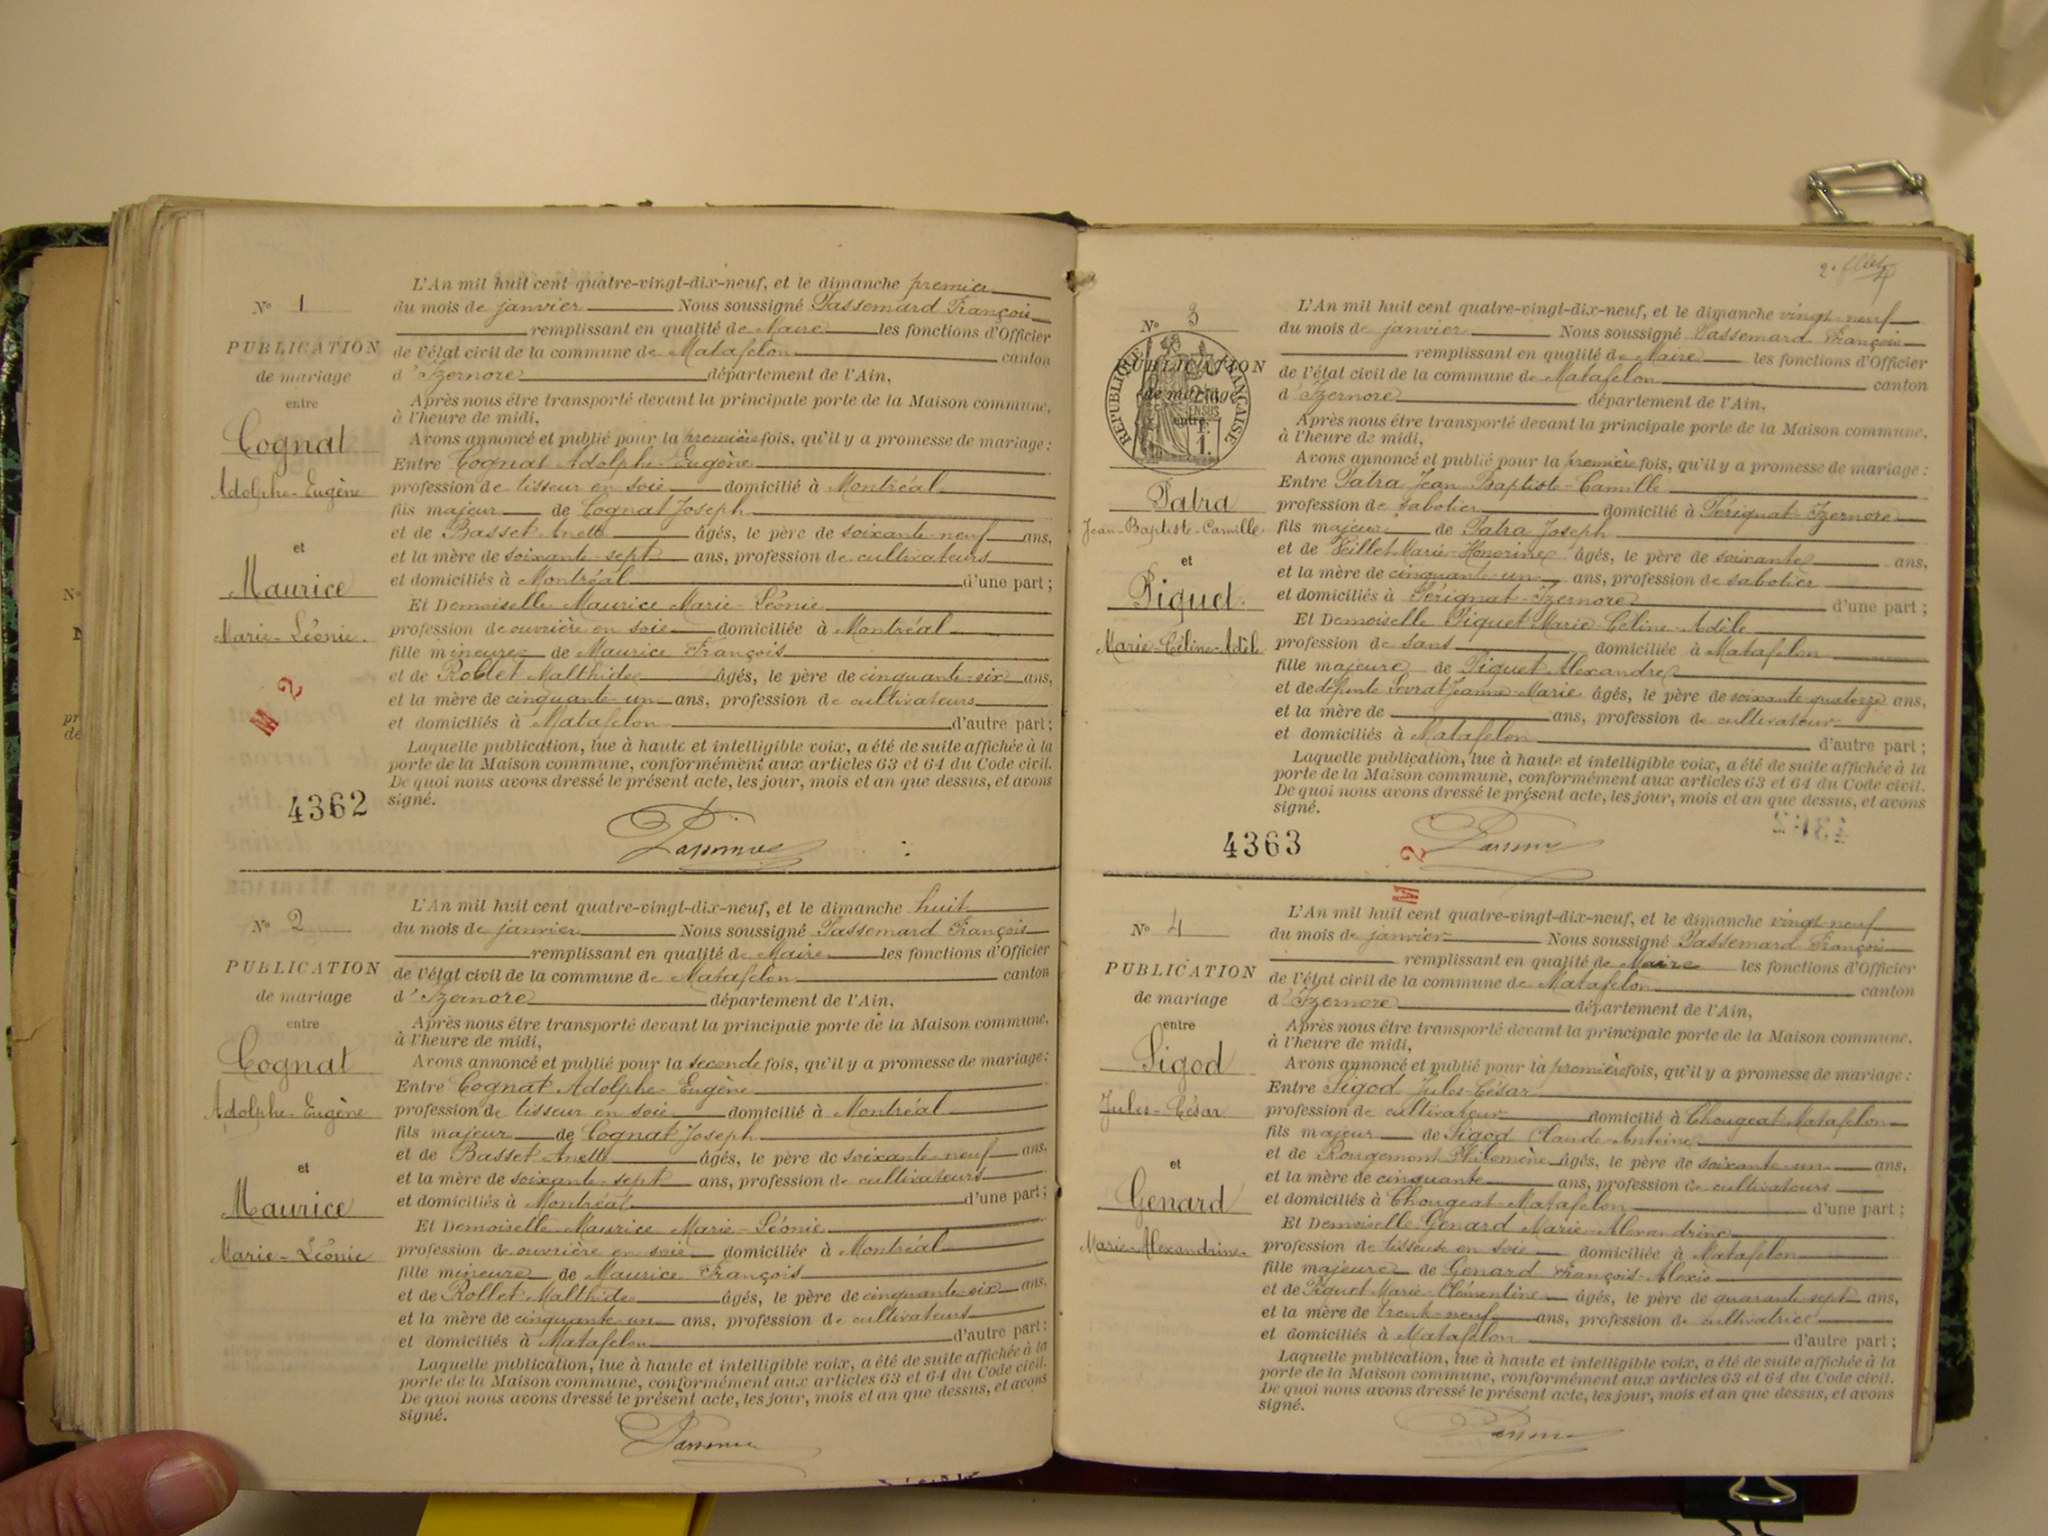 N° 1
PUBLICATION
de mariage
entre
Cognat
Adolphe-Eugène
et
Maurice
Marie-Léonie
M 2
4362
L'An mil huit cent quatre-vingt-dix-neuf, et le dimanche premier
du mois de janvier Nous soussigné Passemard François
remplissant en qualité de Maire les fonctions d'Officier
de l'état civil de la commune de Matafelon canton
d'Izernore département de l'Ain,
Après nous être transporté devant la principale porte de la Maison commune,
à l'heure de midi,
Avons annoncé et publié pour la première fois, qu'il y a promesse de mariage :
Entre Cognat Adolphe-Eugène
profession de tisseur en soie domicilié à Montréal
fils majeur de Cognat Joseph
et de Basset Anette âgés, le père de soixante-neuf ans,
et la mère de soixante-sept ans, profession de cultivateurs
et domiciliés à Montréal d'une part ;
Et Demoiselle Maurice Marie-Léonie
profession de ouvrière en soie domiciliée à Montréal
fille mineure de Maurice François
et de Rollet Malthide âgés, le père de cinquante-six ans,
et la mère de cinquante-un ans, profession de cultivateurs
et domiciliés à Matafelon d'autre part ;
Laquelle publication, lue à haute et intelligible voix, a été de suite affichée à la
porte de la Maison commune, conformément aux articles 63 et 64 du Code civil.
De quoi nous avons dressé le présent acte, les jour, mois et an que dessus, et avons
signé.
N° 2
PUBLICATION
de mariage
entre
Cognat
Adolphe-Eugène
et
Maurice
Marie-Léonie
L'An mil huit cent quatre-vingt-dix-neuf, et le dimanche huit
du mois de janvier Nous soussigné Passemard François
remplissant en qualité de Maire les fonctions d'Officier
de l'état civil de la commune de Matafelon canton
d'Izernore département de l'Ain,
Après nous être transporté devant la principale porte de la Maison commune,
à l'heure de midi,
Avons annoncé et publié pour la seconde fois, qu'il y a promesse de mariage :
Entre Cognat Adolphe-Eugène
profession de tisseur en soie domicilié à Montréal
fils majeur de Cognat Joseph
et de Basset Anette âgés, le père de soixante-neuf ans,
et la mère de soixante-sept ans, profession de cultivateurs
et domiciliés à Montréal d'une part ;
Et Demoiselle Maurice Marie-Léonie
profession de ouvrière en soie domiciliée à Montréal
fille mineure de Maurice François
et de Rollet Malthide âgés, le père de cinquante-six ans,
et la mère de cinquante-un ans, profession de cultivateurs
et domiciliés à Matafelon d'autre part ;
Laquelle publication, lue à haute et intelligible voix, a été de suite affichée à la
porte de la Maison commune, conformément aux articles 63 et 64 du Code civil.
De quoi nous avons dressé le présent acte, les jour, mois et an que dessus, et avons
signé.
N° 3
PUBLICATION
de mariage
entre
RÉPUBLIQUE FRANÇAISE
Patra
Jean-Baptiste-Camille
et
Piquet
Marie-Céline-Adèle
4363
M 2
L'An mil huit cent quatre-vingt-dix-neuf, et le dimanche vingt-neuf
du mois de janvier Nous soussigné Passemard François
remplissant en qualité de Maire les fonctions d'Officier
de l'état civil de la commune de Matafelon canton
d'Izernore département de l'Ain,
Après nous être transporté devant la principale porte de la Maison commune,
à l'heure de midi,
Avons annoncé et publié pour la première fois, qu'il y a promesse de mariage :
Entre Patra Jean Baptiste-Camille
profession de sabotier domicilié à Pérignat-Izernore
fils majeur de Patra Joseph
et de Veillet Marie-Honorine âgés, le père de soixante ans,
et la mère de cinquante-un ans, profession de sabotier
et domiciliés à Pérignat-Izernore d'une part ;
Et Demoiselle Piquet Marie-Céline-Adèle
profession de sans domiciliée à Matafelon
fille majeure de Piquet Alexandre
et de défunte Jeanne-Marie âgés, le père de soixante quatorze ans,
et la mère de ans, profession de cultivateur
et domiciliés à Matafelon d'autre part ;
Laquelle publication, lue à haute et intelligible voix, a été de suite affichée à la
porte de la Maison commune, conformément aux articles 63 et 64 du Code civil.
De quoi nous avons dressé le présent acte, les jour, mois et an que dessus, et avons
signé.
N° 4
PUBLICATION
de mariage
entre
Sigod
Jules-César
et
Genard
Marie-Alexandrine
L'An mil huit cent quatre-vingt-dix-neuf, et le dimanche vingt-neuf
du mois de janvier Nous soussigné Passemard François
remplissant en qualité de Maire les fonctions d'Officier
de l'état civil de la commune de Matafelon canton
d'Izernore département de l'Ain,
Après nous être transporté devant la principale porte de la Maison commune,
à l'heure de midi,
Avons annoncé et publié pour la première fois, qu'il y a promesse de mariage :
Entre Sigod Jules-César
profession de cultivateur domicilié à Chougeat-Matafelon
fils majeur de Sigod Claude-Antoine
et de Rougemont Philomène âgés, le père de soixante-un ans,
et la mère de cinquante ans, profession de cultivateurs
et domiciliés à Chougeat-Matafelon d'une part ;
Et Demoiselle Genard Marie-Alexandrine
profession de tisseuse en soie domiciliée à Matafelon
fille majeure de Genard François-Alexis
et de Piquet Marie-Clémentine âgés, le père de quarante-sept ans,
et la mère de trente-neuf ans, profession de cultivatrice
et domiciliés à Matafelon d'autre part ;
Laquelle publication, lue à haute et intelligible voix, a été de suite affichée à la
porte de la Maison commune, conformément aux articles 63 et 64 du Code civil.
De quoi nous avons dressé le présent acte, les jour, mois et an que dessus, et avons
signé.